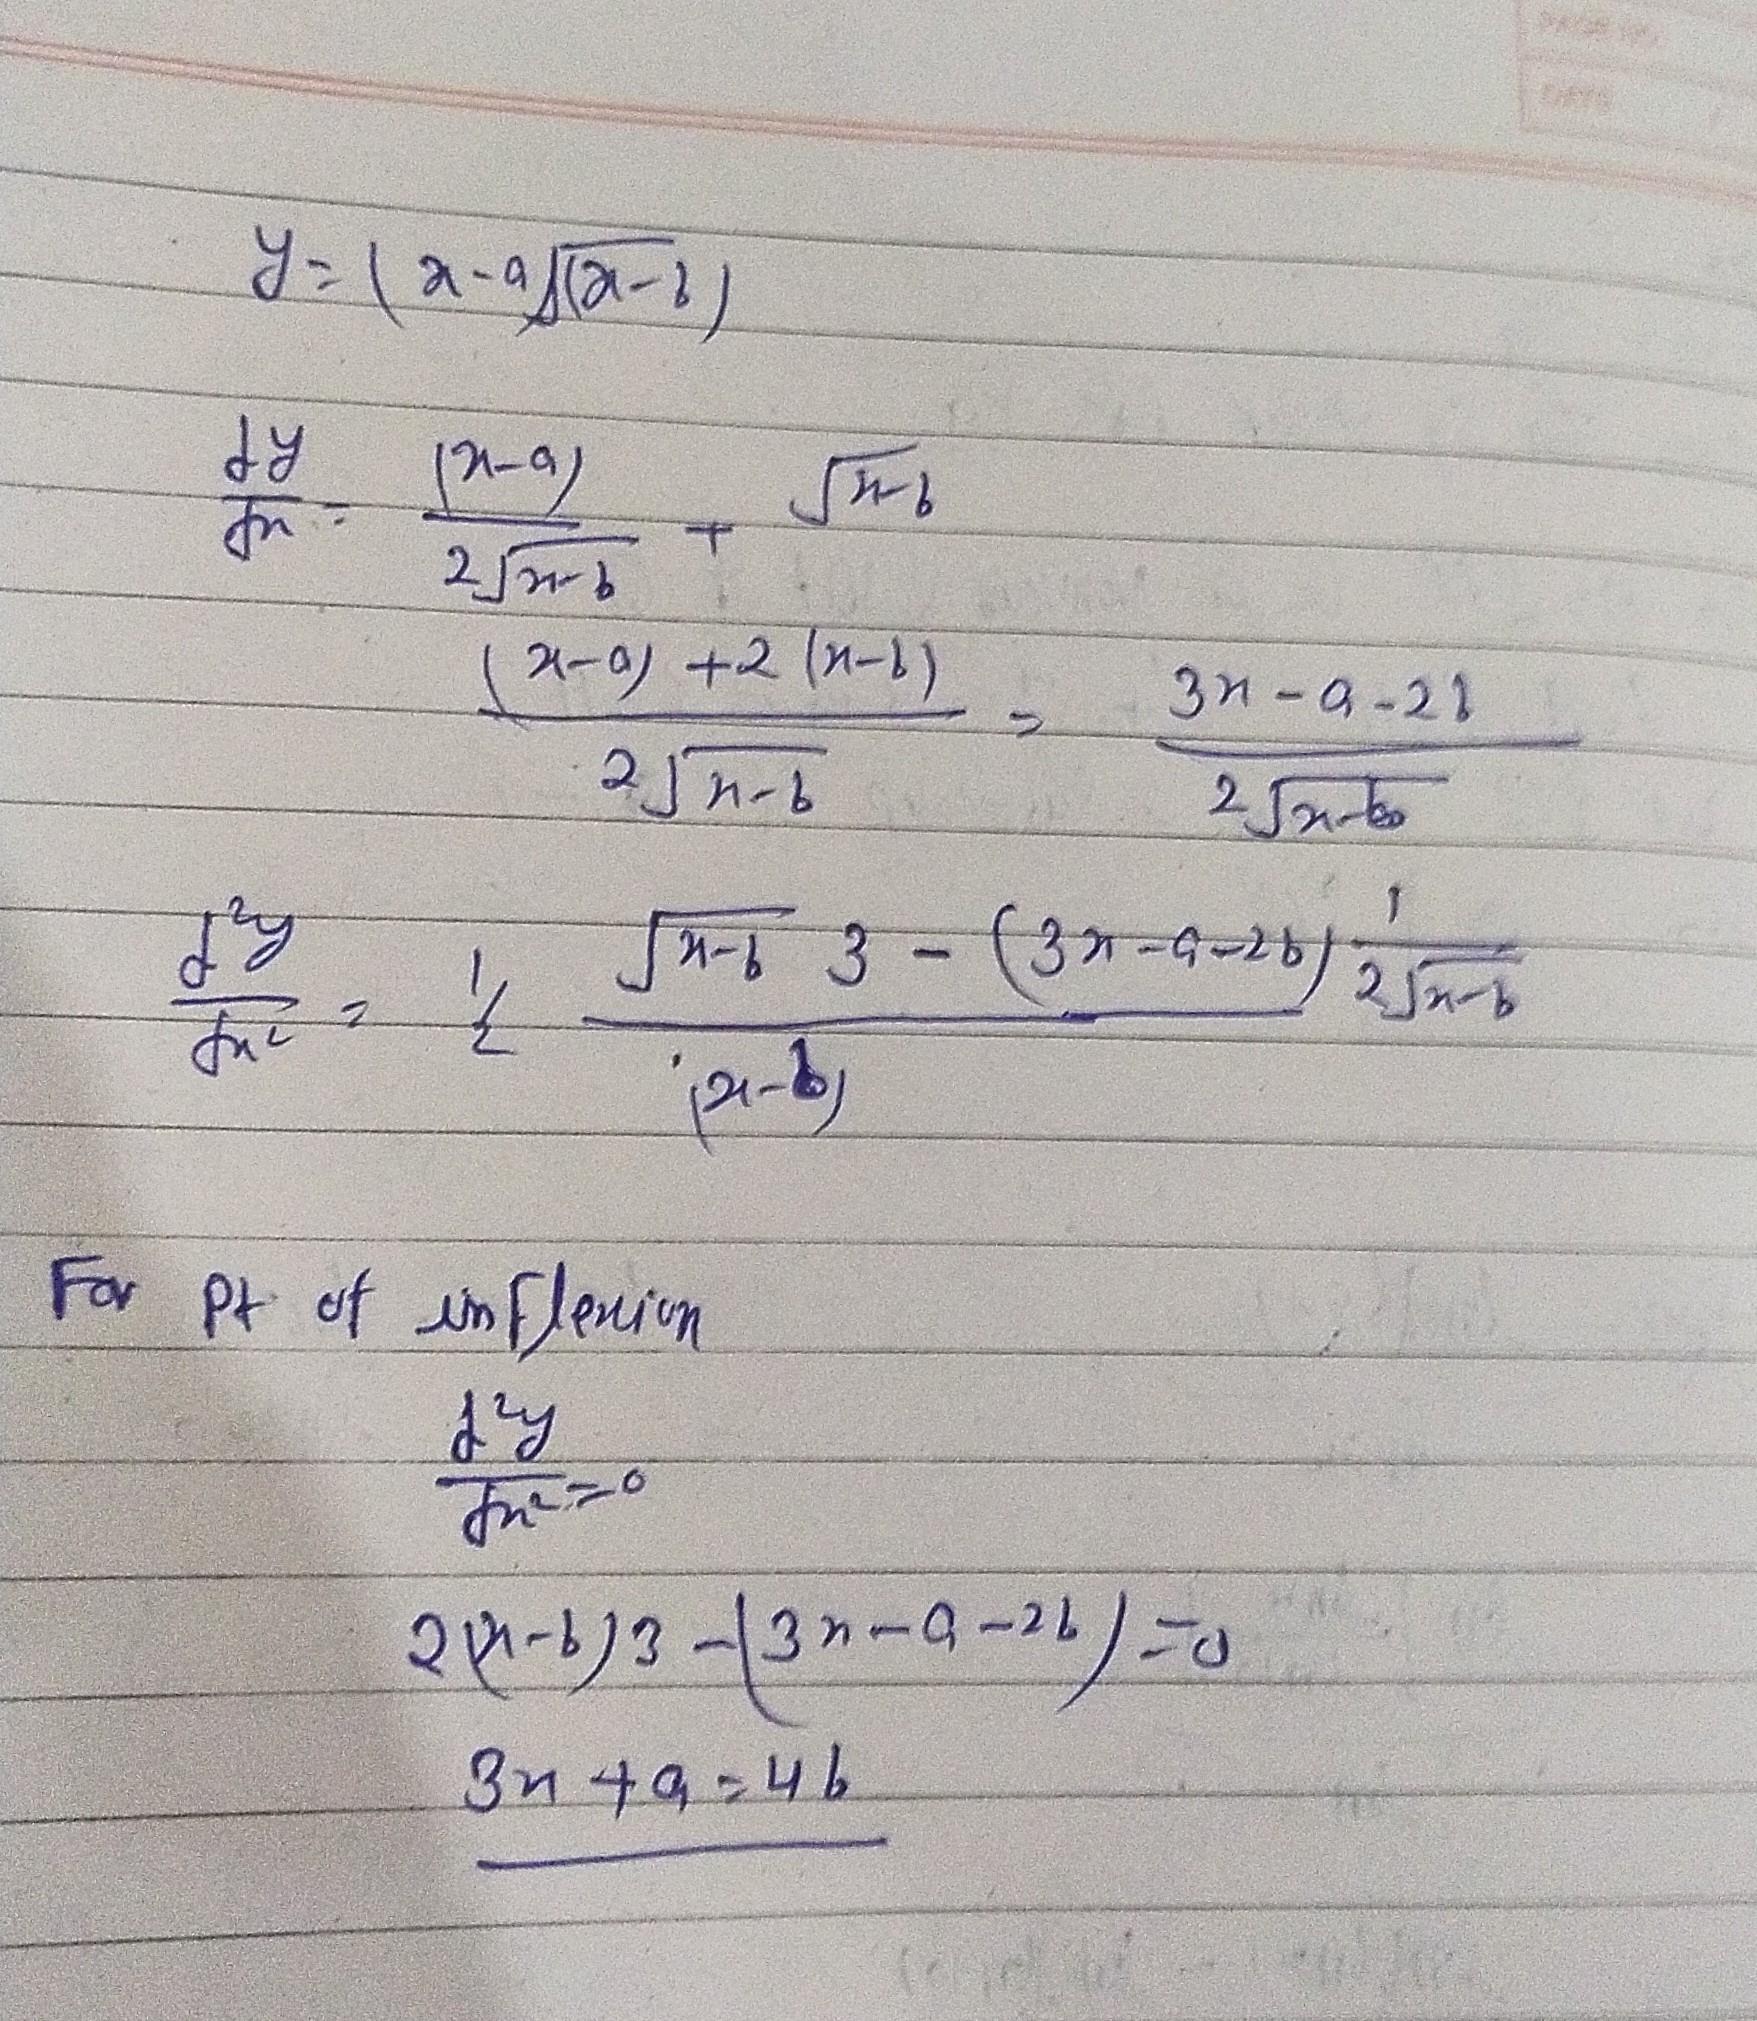 y = (x-a)√(x-b)
dy/dx = (x-a)/2√x-b + √x-b
(x-a) + 2(x-b)/2√x-b = 3x-a-2b/2√x-b
d²y/dx² = 1/2 √x-b 3 - (3x-a-2b) 1/2√x-b / (x-b)
For pt of inflexion
d²y/dx² = 0
2(x-b)3 - (3x-a-2b) = 0
3x + a = 4b